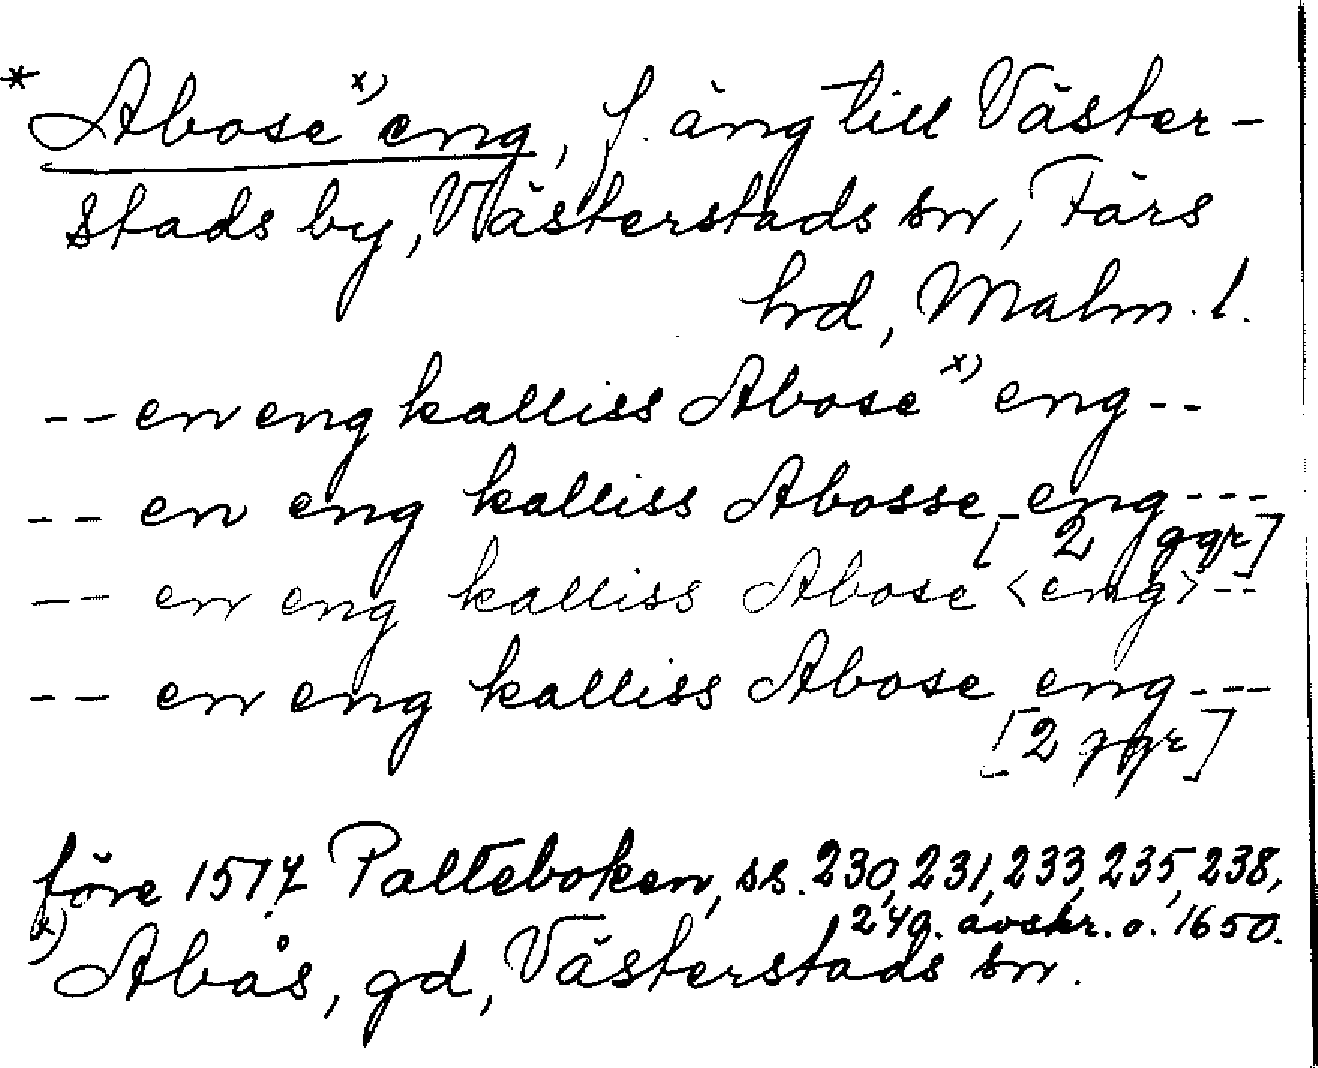 * Abose x) eng, f. äng till Väster-
stads by, Västerstads sn, Färs
hd, Malm. l.
-- en eng kalliss Abose x) eng --
-- en eng kalliss Abosse eng ---
[2 ggr]
-- en eng kalliss Abose <eng> --
-- en eng kalliss Abose eng ---
[2 ggr]
före 1517 Palteboken, ss. 230, 231, 233, 235, 238,
249. avskr. o. 1650.
x) Abås, gd, Västerstads sn.